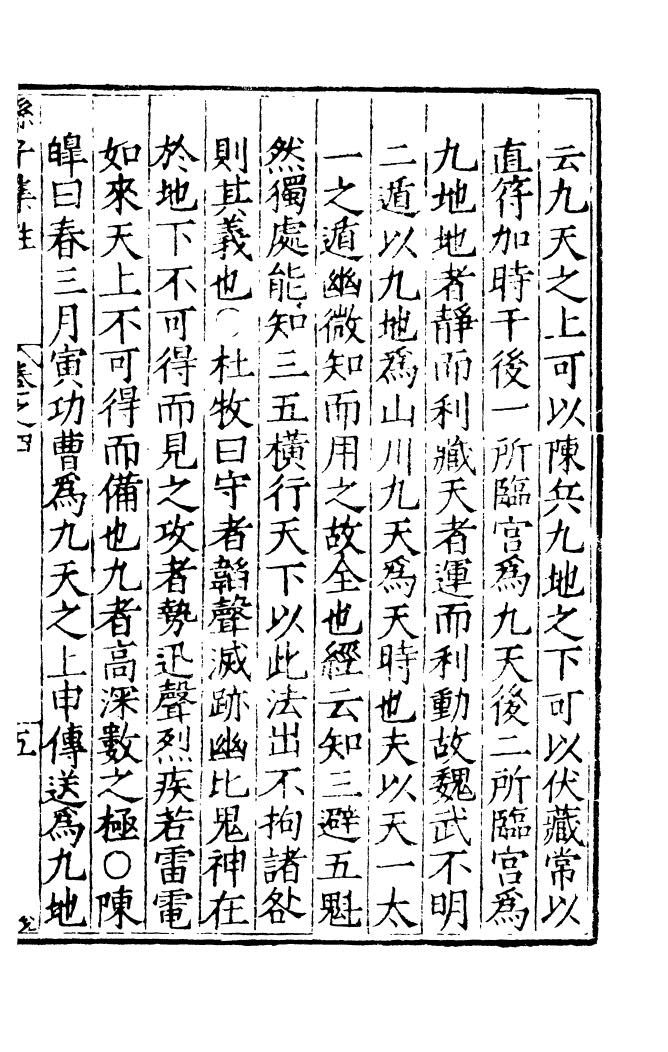 云九天之上可以陳兵九地之下可以伏藏常以
直符加時干後一所臨宫爲九天後二所臨宫爲
九地地者靜而利藏天者運而利動故魏武不明
二遁以九地爲山川九天爲天時也夫以天一太
一之遁幽微知而用之故全也經云知三避五魁
然獨處能知三五橫行天下以此法出不拘諸咎
則其義也○杜牧曰守者韜聲滅跡幽比鬼神在
於地下不可得而見之攻者勢迅聲烈疾若雷電
如來天上不可得而備也九者高深數之極○陳
皥曰春三月寅功曹爲九天之上申傳送爲九地
孫子集註
卷之四
五